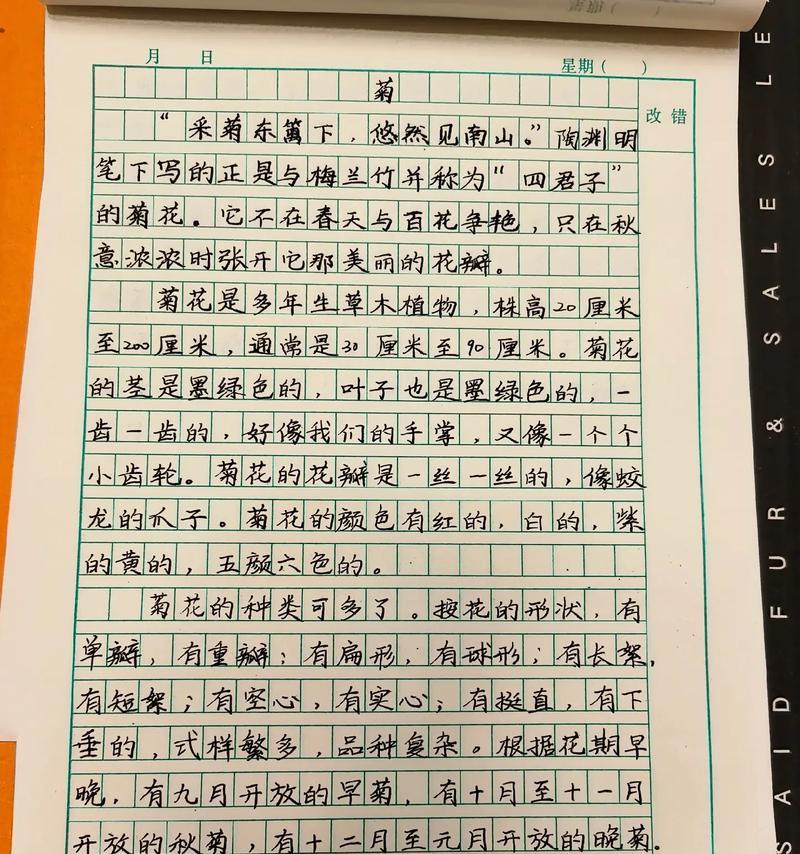 月 日
星期( )
菊
改错
“采菊东篱下，悠然见南山。”陶渊明
笔下写的正是与梅兰竹并称为“四君子”
的菊花。它不在春天与百花争艳，只在秋
意浓浓时张开它那美丽的花瓣。
菊花是多年生草木植物，株高20厘米
至200厘米，通常是30厘米至90厘米。菊花
的茎是墨绿色的，叶子也是墨绿色的，一
齿一齿的，好像我们的手掌，又像一个个
小齿轮。菊花的花瓣是一丝一丝的，像蛟
龙的爪子。菊花的颜色有红的，白的，紫
的黄的，五颜六色的。
菊花的种类可多了。按花的形状，有
单瓣，有重瓣；有扁形，有球形；有长絮，
有短絮；有空心，有实心；有挺直，有下
垂的，式样繁多，品种复杂。根据花期早
晚，有九月开放的早菊，有十月至十一月
开放的秋菊，有十二月至元月开放的晚菊。
SAID FUR & SALES LE